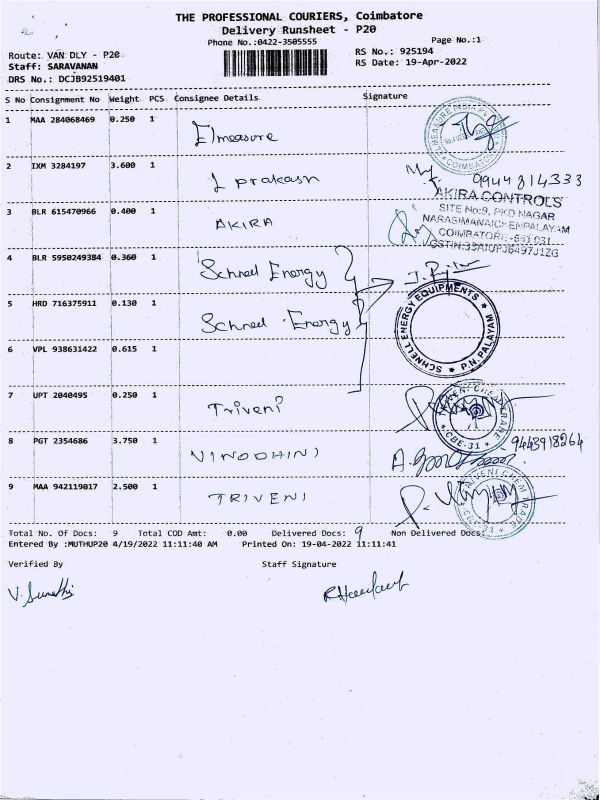 THE PROFESSIONAL COURIERS, Coimbatore
Delivery Runsheet - P20
Phone No.:0422-3505555
Page No.:1
Route: VAN DLY - P20
RS No.: 925194
Staff: SARAVANAN
RS Date: 19-Apr-2022
DRS No.: DCJB92519401
S No Consignment No Weight PCS Consignee Details Signature
1 MAA 284068469 0.250 1 Elmeasure
COIMBATORE
2 IXM 3284197 3.600 1 J prakash 9944814333
AKIRA CONTROLS
3 BLR 615470966 0.400 1 AKIRA
SITE No:9, PKD NAGAR
NARASIMANAICKENPALAYAM
COIMBATORE - 641 031
4 BLR 5950249384 0.360 1 Schnell Energy
5 HRD 716375911 0.130 1 Schneel Energy
SCHNELL ENERGY EQUIPMENTS ★ P.N. PALAYAM ★
6 VPL 938631422 0.615 1
7 UPT 2040495 0.250 1 Triveni
TRIVENI CHEM TRADE ★ CBE-31 ★
8 PGT 2354686 3.750 1 VINODHINI 9443918264
9 MAA 942119017 2.500 1 TRIVENI
TRIVENI CHEM TRADE
Total No. Of Docs: 9 Total COD Amt: 0.00 Delivered Docs: 9 Non Delivered Docs:
Entered By :MUTHUP20 4/19/2022 11:11:40 AM Printed On: 19-04-2022 11:11:41
Verified By Staff Signature